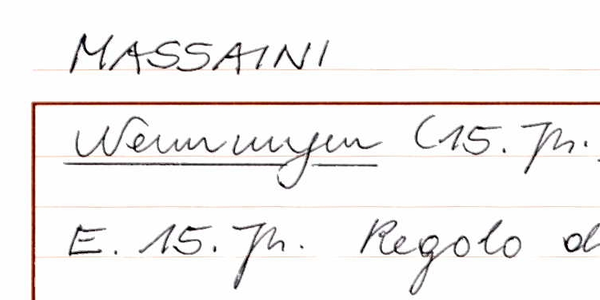 MASSAINI
Nennungen (15. Jh.
E. 15. Jh. Regolo d